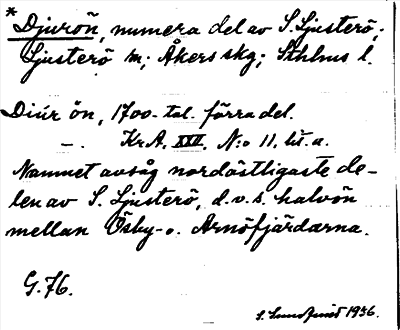 * Djurön, numera del av S. Ljusterö;
Ljusterö sn; Åkers skg; Sthlms l.
Diúr ön, 1700-tal. förra del.
—.  Kr.A. XXII. N:o 11. lit. a.
Namnet avsåg nordöstligaste de-
len av S. Ljusterö, d.v.s. halvön
mellan Ösby- o. Arnöfjärdarna.
G. 76.
1936.